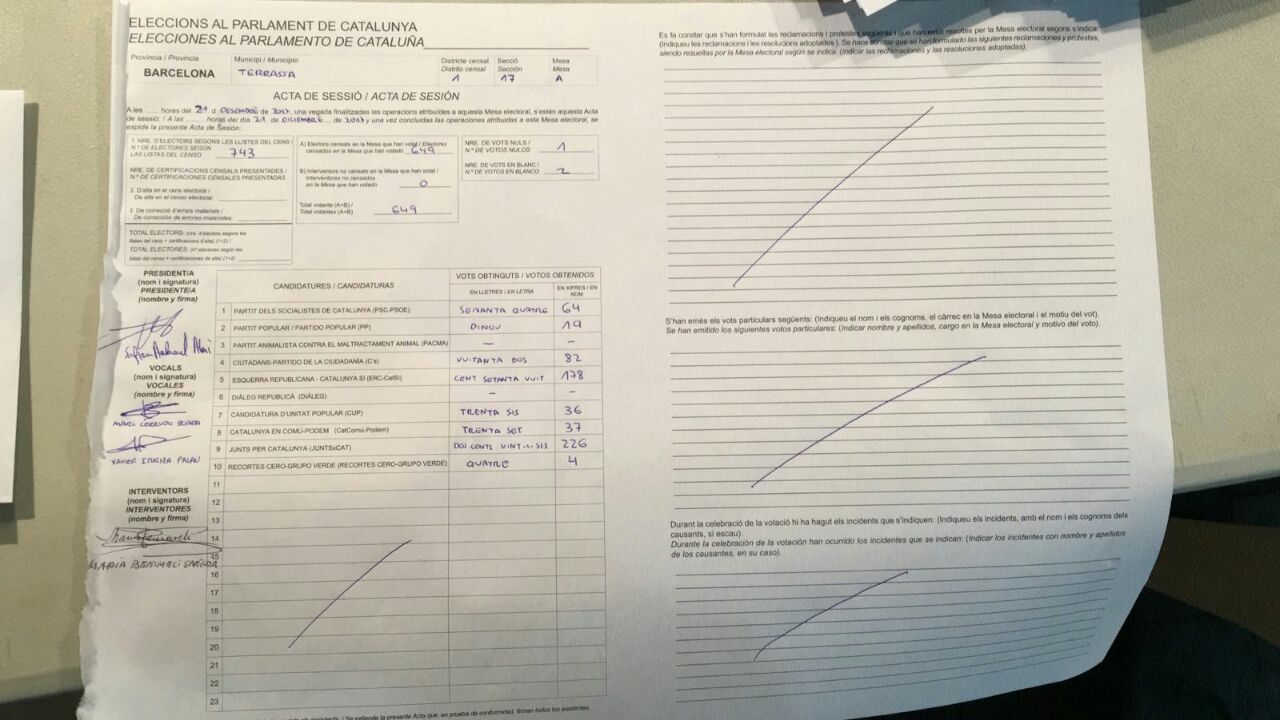 ELECCIONS AL PARLAMENT DE CATALUNYA
ELECCIONES AL PARLAMENTO DE CATALUÑA
Província / Provincia
BARCELONA
Municipi / Municipio
TERRASSA
Districte censal
Distrito censal
1
Secció
Sección
17
Mesa
Mesa
A
ACTA DE SESSIÓ / ACTA DE SESIÓN
A les ...... hores del 21 d DESEMBRE de 2017, una vegada finalitzades les operacions atribuïdes a aquesta Mesa electoral, s'estén aquesta Acta
de sessió: / A las ...... horas del día 21 de DICIEMBRE de 2017 y una vez concluidas las operaciones atribuidas a esta Mesa electoral, se
expide la presente Acta de Sesión:
1. NRE. D'ELECTORS SEGONS LES LLISTES DEL CENS /
N.º DE ELECTORES SEGÚN
LAS LISTAS DEL CENSO 743
NRE. DE CERTIFICACIONS CENSALS PRESENTADES /
N.º DE CERTIFICACIONES CENSALES PRESENTADAS
2. D'alta en el cens electoral /
De alta en el censo electoral:
3. De correcció d'errors materials /
De corrección de errores materiales:
TOTAL ELECTORS: (nre. d'electors segons les
llistes del cens + certificacions d'alta) (1+2) /
TOTAL ELECTORES: (N.º electores según las
listas del censo + certificaciones de alta) (1+2)
A) Electors censats en la Mesa que han votat / Electores
censados en la Mesa que han votado 649
B) Interventors no censats en la Mesa que han votat /
Interventores no censados
en la Mesa que han votado 0
Total votants (A+B) /
Total votantes (A+B) 649
NRE. DE VOTS NULS /
N.º DE VOTOS NULOS 1
NRE. DE VOTS EN BLANC /
N.º DE VOTOS EN BLANCO 2
PRESIDENT/A
(nom i signatura)
PRESIDENTE/A
(nombre y firma)
VOCALS
(nom i signatura)
VOCALES
(nombre y firma)
XAVIER PALAU
INTERVENTORS
(nom i signatura)
INTERVENTORES
(nombre y firma)
MARIA
CANDIDATURES / CANDIDATURAS
VOTS OBTINGUTS / VOTOS OBTENIDOS
EN LLETRES / EN LETRA
EN XIFRES / EN NÚM
1 PARTIT DELS SOCIALISTES DE CATALUNYA (PSC-PSOE) SEIXANTA QUATRE 64
2 PARTIT POPULAR / PARTIDO POPULAR (PP) DINOU 19
3 PARTIT ANIMALISTA CONTRA EL MALTRACTAMENT ANIMAL (PACMA) — –
4 CIUTADANS-PARTIDO DE LA CIUDADANÍA (C's) VUITANTA DOS 82
5 ESQUERRA REPUBLICANA - CATALUNYA SÍ (ERC-CatSí) CENT SETANTA VUIT 178
6 DIÀLEG REPUBLICÀ (DIÀLEG) – –
7 CANDIDATURA D'UNITAT POPULAR (CUP) TRENTA SIS 36
8 CATALUNYA EN COMÚ-PODEM (CatComú-Podem) TRENTA SET 37
9 JUNTS PER CATALUNYA (JUNTSxCAT) DOS CENTS VINT-I-SIS 226
10 RECORTES CERO-GRUPO VERDE (RECORTES CERO-GRUPO VERDE) QUATRE 4
11
12
13
14
15
16
17
18
19
20
21
22
23
/ Se extiende la presente Acta que, en prueba de conformidad, firman todos los asistentes.
Es fa constar que s'han formulat les reclamacions i protestes següents i que han estat resoltes per la Mesa electoral segons s'indica:
(Indiqueu les reclamacions i les resolucions adoptades). Se hace constar que se han formulado las siguientes reclamaciones y protestas,
siendo resueltas por la Mesa electoral según se indica. (Indicar las reclamaciones y las resoluciones adoptadas).
S'han emès els vots particulars següents: (Indiqueu el nom i els cognoms, el càrrec en la Mesa electoral i el motiu del vot).
Se han emitido los siguientes votos particulares: (Indicar nombre y apellidos, cargo en la Mesa electoral y motivo del voto).
Durant la celebració de la votació hi ha hagut els incidents que s'indiquen: (Indiqueu els incidents, amb el nom i els cognoms dels
causants, si escau).
Durante la celebración de la votación han ocurrido los incidentes que se indican: (Indicar los incidentes con nombre y apellidos
de los causantes, en su caso).